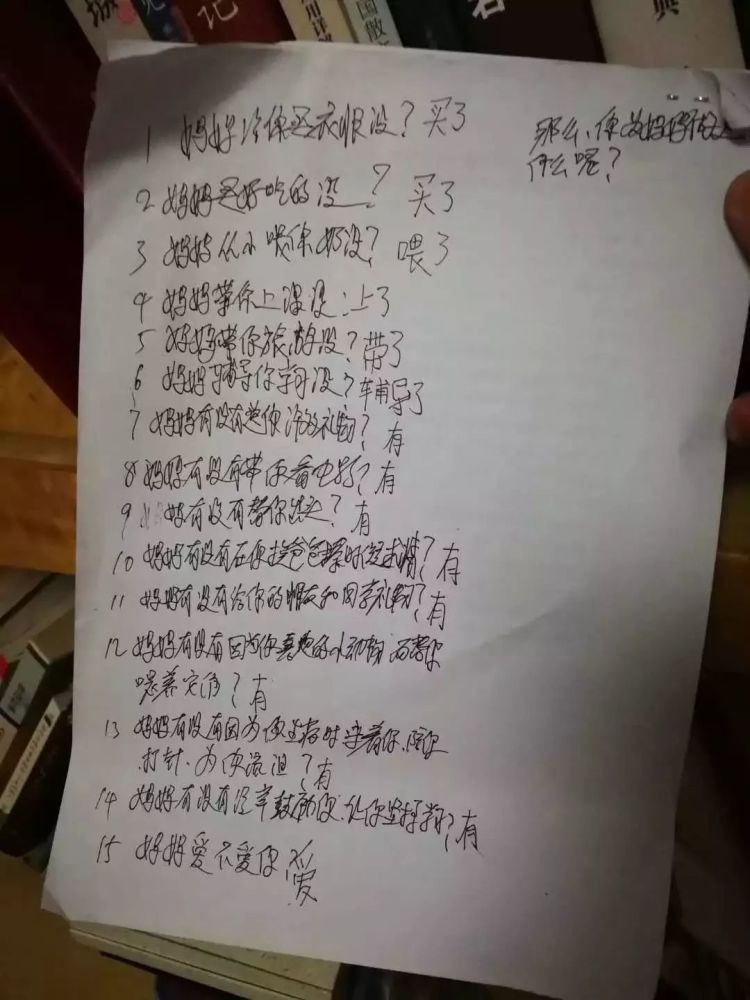 记
1 妈妈给你买衣服没？买了
2 妈妈买好吃的没？买了
3 妈妈从小喂你奶没？喂了
4 妈妈带你上课没：上了
5 妈妈带你旅游没？带了
6 妈妈辅导你学习没？辅导了
7 妈妈有没有送你的礼物？有
8 妈妈有没有带你看电影？有
9 妈妈有没有帮你？有
10 妈妈有没有在你挨爸爸揍时说求情？有
11 妈妈有没有给你的朋友和同学礼物？有
12 妈妈有没有因为你喜欢的小动物而帮你
喂养它们？有
13 妈妈有没有因为你生病时守着你、陪你
打针、为你流泪？有
14 妈妈有没有经常鼓励你、让你坚持？有
15 妈妈爱不爱你 爱
那么、你为妈妈做过
什么呢？